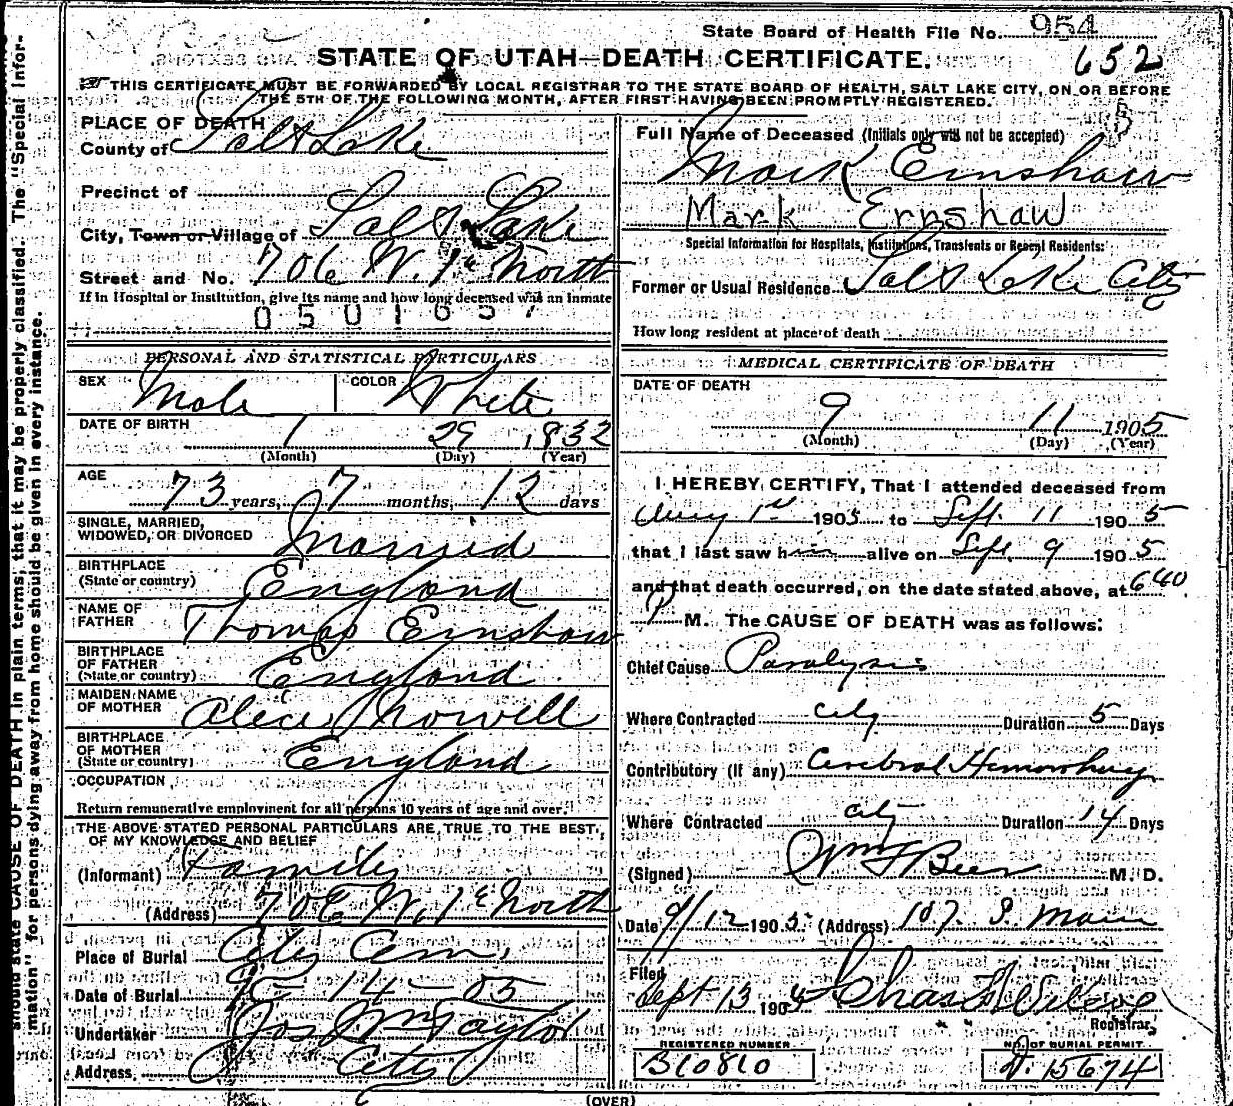 State Board of Health File No. 954
STATE OF UTAH—DEATH CERTIFICATE.
652
THIS CERTIFICATE MUST BE FORWARDED BY LOCAL REGISTRAR TO THE STATE BOARD OF HEALTH, SALT LAKE CITY, ON OR BEFORE
THE 5TH OF THE FOLLOWING MONTH, AFTER FIRST HAVING BEEN PROMPTLY REGISTERED.
PLACE OF DEATH
County of Salt Lake
Precinct of
City, Town or Village of Salt Lake
Street and No. 706 W. 1st North
If in Hospital or Institution, give its name and how long deceased was an inmate
0501657
PERSONAL AND STATISTICAL PARTICULARS
SEX Male COLOR White
DATE OF BIRTH 1 29 1832
(Month) (Day) (Year)
AGE 73 years, 7 months, 12 days
SINGLE, MARRIED,
WIDOWED, OR DIVORCED Married
BIRTHPLACE
(State or country) England
NAME OF
FATHER Thomas Ernshaw
BIRTHPLACE
OF FATHER
(State or country) England
MAIDEN NAME
OF MOTHER Alice
BIRTHPLACE
OF MOTHER
(State or country) England
OCCUPATION
Return remunerative employment for all persons 10 years of age and over.
THE ABOVE STATED PERSONAL PARTICULARS ARE TRUE TO THE BEST
OF MY KNOWLEDGE AND BELIEF
(Informant) Family
(Address) 706 W. 1st North
Place of Burial City Cem,
Date of Burial 9 — 14 — 05
Undertaker Jos Wm Taylor
Address, City
Full Name of Deceased (Initials only will not be accepted)
Mark Ernshaw
Mark Ernshaw
Special Information for Hospitals, Institutions, Transients or Recent Residents:
Former or Usual Residence Salt Lake City
How long resident at place of death
MEDICAL CERTIFICATE OF DEATH
DATE OF DEATH
9 11 1905
(Month) (Day) (Year)
I HEREBY CERTIFY, That I attended deceased from
Aug 1st 1905 to Sept. 11 1905
that I last saw him alive on Sept. 9 1905
and that death occurred, on the date stated above, at 640
P M. The CAUSE OF DEATH was as follows:
Chief Cause Paralysis
Where Contracted City Duration 5 Days
Contributory (if any) Cerebral Hemorrhage
Where Contracted City Duration 14 Days
(Signed) Wm F Beer M. D.
Date 9/12 1905 (Address) 107. S. Main
Filed
Sept 13 1905 Chas
Registrar
REGISTERED NUMBER NO. OF BURIAL PERMIT
B10810 15674
(OVER)
should state CAUSE OF DEATH in plain terms, that it may be properly classified. The "Special Infor-
mation" for persons dying away from home should be given in every instance.